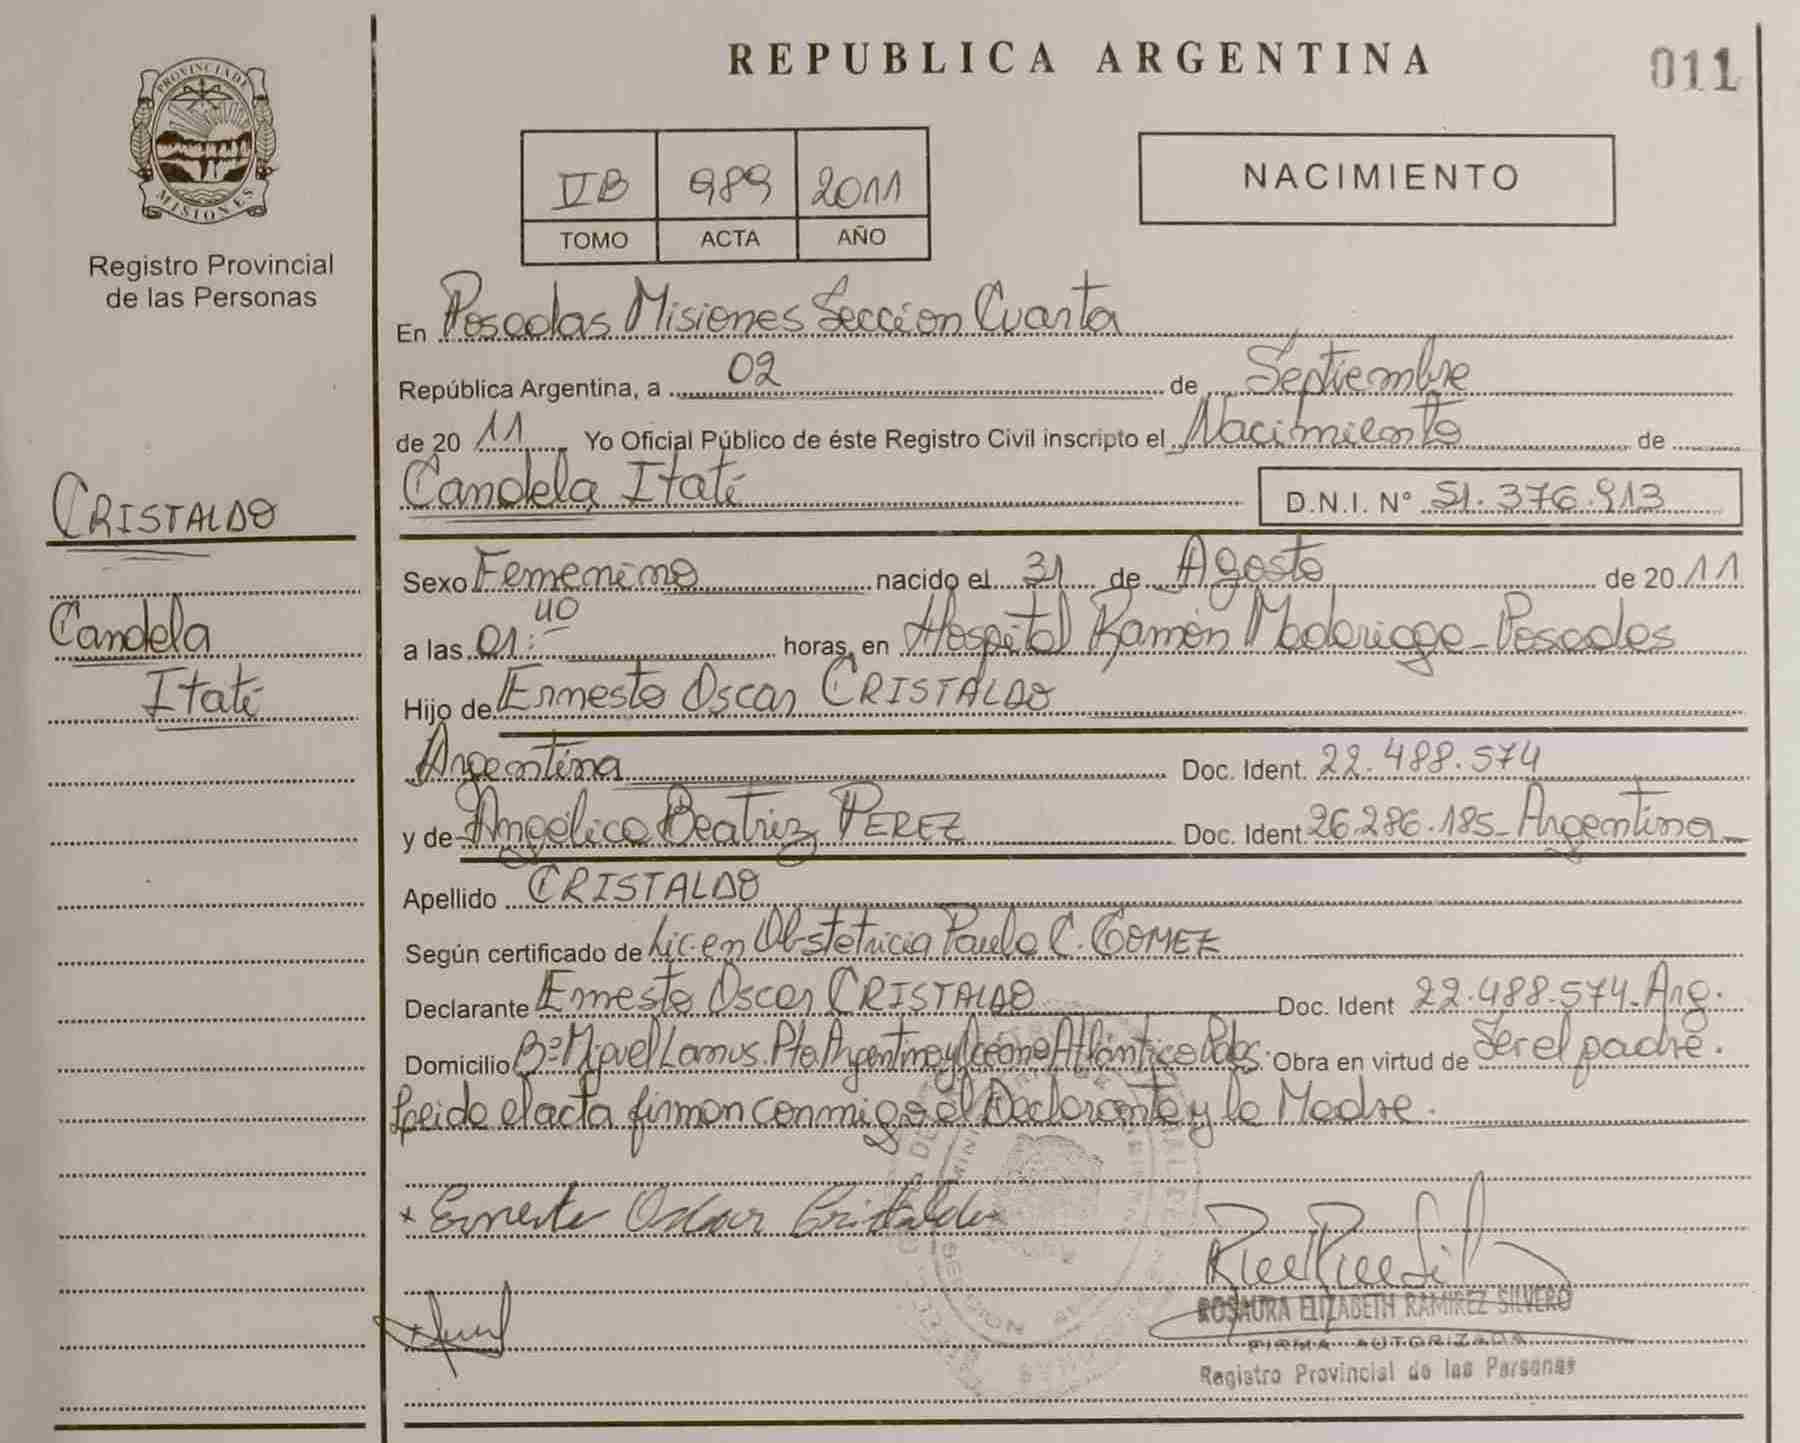 REPUBLICA ARGENTINA
011
PROVINCIA DE
MISIONES
Registro Provincial
de las Personas
VB 989 2011
TOMO ACTA AÑO
NACIMIENTO
En Posadas Misiones Sección Cuarta
República Argentina, a 02 de Septiembre
de 20 11 Yo Oficial Público de éste Registro Civil inscripto el Nacimiento de
Candela Itatí D.N.I. N° 51.376.913
CRISTALDO
Candela
Itatí
Sexo Femenino nacido el 31 de Agosto de 20 11
a las 01:40 horas, en Hospital Ramón Madariaga - Posadas
Hijo de Ernesto Oscar CRISTALDO
Argentina Doc. Ident. 22.488.574
y de Angélica Beatriz PEREZ Doc. Ident. 26.286.185 - Argentina
Apellido CRISTALDO
Según certificado de Lic. en Obstetricia Paula C. GOMEZ
Declarante Ernesto Oscar CRISTALDO Doc. Ident 22.488.574 - Arg.
Domicilio B° Miguel Lanus. Pto. Argentino y Océano Atlántico Pdas. Obra en virtud de Ser el padre.
Leida el acta firman conmigo el Declarante y la Madre.
Ernesto Oscar Cristaldo
ROSAURA ELIZABETH RAMIREZ SILVERO
FIRMA AUTORIZADA
Registro Provincial de las Personas